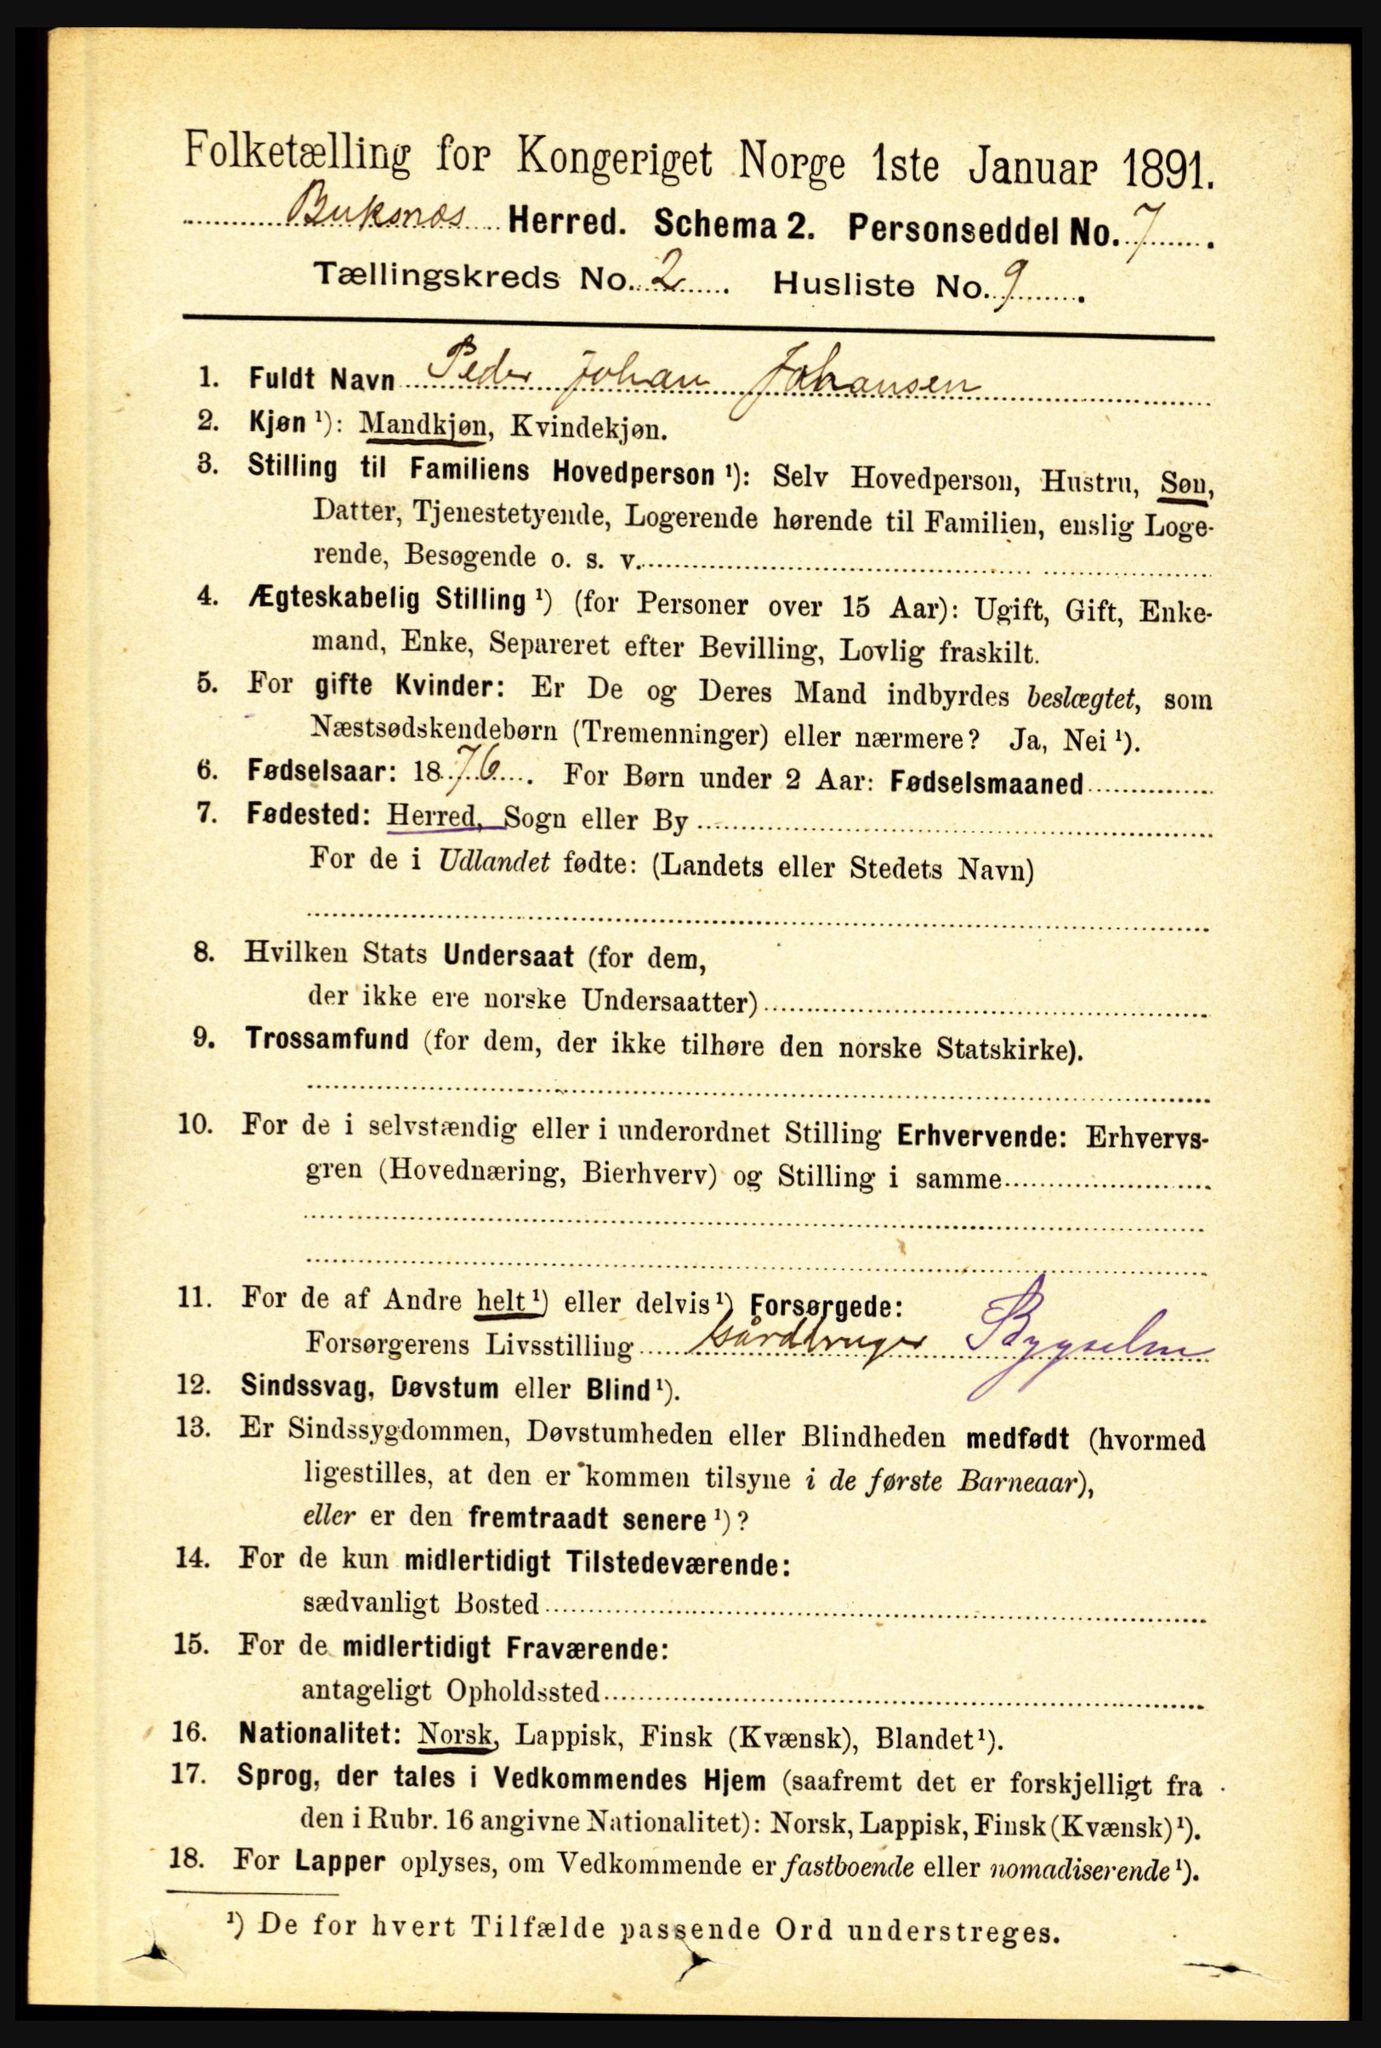 Folketælling for Kongeriget Norge 1ste Januar 1891.
Buksnæs Herred. Schema 2. Personseddel No. 7.
Tællingskreds No. 2. Husliste No. 9.
1. Fuldt Navn Peder Johan Johansen
2. Kjøn ¹): Mandkjøn, Kvindekjøn.
3. Stilling til Familiens Hovedperson ¹): Selv Hovedperson, Hustru, Søn,
Datter, Tjenestetyende, Logerende hørende til Familien, enslig Loge-
rende, Besøgende o. s. v.
4. Ægteskabelig Stilling ¹) (for Personer over 15 Aar): Ugift, Gift, Enke-
mand, Enke, Separeret efter Bevilling, Lovlig fraskilt.
5. For gifte Kvinder: Er De og Deres Mand indbyrdes beslægtet, som
Næstsødskendebørn (Tremenninger) eller nærmere? Ja, Nei ¹).
6. Fødselsaar: 1876. For Børn under 2 Aar: Fødselsmaaned
7. Fødested: Herred, Sogn eller By
For de i Udlandet fødte: (Landets eller Stedets Navn)
8. Hvilken Stats Undersaat (for dem,
der ikke ere norske Undersaatter)
9. Trossamfund (for dem, der ikke tilhøre den norske Statskirke).
10. For de i selvstændig eller i underordnet Stilling Erhvervende: Erhvervs-
gren (Hovednæring, Bierhverv) og Stilling i samme
11. For de af Andre helt ¹) eller delvis ¹) Forsørgede:
Forsørgerens Livsstilling Gårdbruger Bygselm
12. Sindssvag, Døvstum eller Blind ¹).
13. Er Sindssygdommen, Døvstumheden eller Blindheden medfødt (hvormed
ligestilles, at den er kommen tilsyne i de første Barneaar),
eller er den fremtraadt senere ¹)?
14. For de kun midlertidigt Tilstedeværende:
sædvanligt Bosted
15. For de midlertidigt Fraværende:
antageligt Opholdssted
16. Nationalitet: Norsk, Lappisk, Finsk (Kvænsk), Blandet ¹).
17. Sprog, der tales i Vedkommendes Hjem (saafremt det er forskjelligt fra
den i Rubr. 16 angivne Nationalitet): Norsk, Lappisk, Finsk (Kvænsk) ¹).
18. For Lapper oplyses, om Vedkommende er fastboende eller nomadiserende ¹).
¹) De for hvert Tilfælde passende Ord understreges.